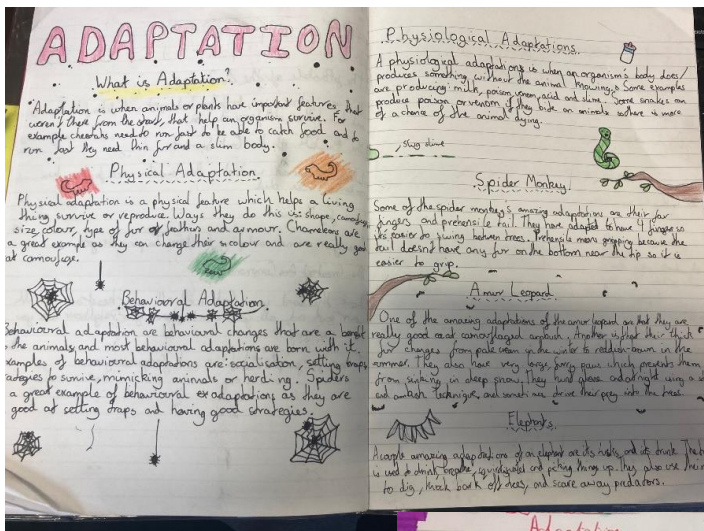 ADAPTATION
What is Adaptation?
Adaptation is when animals or plants have important features, that
weren't there from the start, that help an organism survive. For
example cheetahs need to run fast to be able to catch food and to
run fast they need thin fur and a slim body.
Physical Adaptation
Physical adaptation is a physical feature which helps a living
thing survive or reproduce. Ways they do this is: shape, camouflage,
size, colour, type of fur or feathers and armour. Chameleons are
a great example as they can change their colour and are really good
at camofuge.
Behavioural Adaptation
Behavioural adaptation are behavioural changes that are a benefit
the animals and most behavioural adaptations are born with it.
examples of behavioural adaptations are: socialisation, setting traps,
strategies to survive, mimicking animals or herding. Spiders
a great example of behavioural adaptations as they are
good at setting traps and having good strategies.
Physiological Adaptations
A physiological adaptations is when an organism's body does/
produces something without the animal knowing. Some examples
are producing: milk, poison, venom, acid and slime. Some snakes can
produce poison or venom if they bite an animals so there is more
of a chance of the animal dying.
slug slime
Spider Monkey
Some of the spider monkey's amazing adaptations are their four
fingers and prehensile tail. They have adapted to have 4 fingers so
it's easier to swing between trees. Prehensile means gripping because the
tail doesn't have any fur on the bottom near the tip so it is
easier to grip.
Amur Leopard
One of the amazing adaptations of the amur leopard are that they are
really good at camouflaged ambush. Another is that their thick
fur changes from pale cream in the winter to reddish-brown in the
summer. They also have very large, furry paws which prevents them
from sinking in deep snow. They hunt alone and at night using a
and ambush technique, and sometimes drive their prey into the trees.
Elephants
A couple amazing adaptations of an elephant are its tusks, and its trunk. The
is used to drink, breathe, squirting and picking things up. They also use their
to dig, knock bark off trees, and scare away predators.
Adaptation